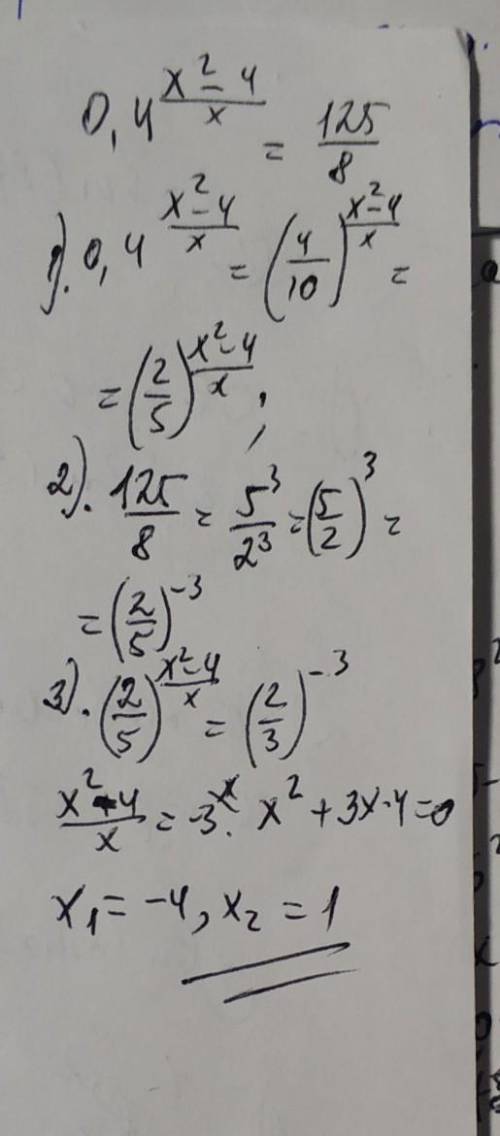 0,4^((x²-4)/x) = 125/8
1). 0,4^((x²-4)/x) = (4/10)^((x²-4)/x) =
= (2/5)^((x²-4)/x) ;
2). 125/8 = 5³/2³ = (5/2)³ =
= (2/5)^(-3)
3). (2/5)^((x²-4)/x) = (2/3)^(-3)
(x²-4)/x = -3^x. x² + 3x-4=0
x₁ = -4, x₂ = 1